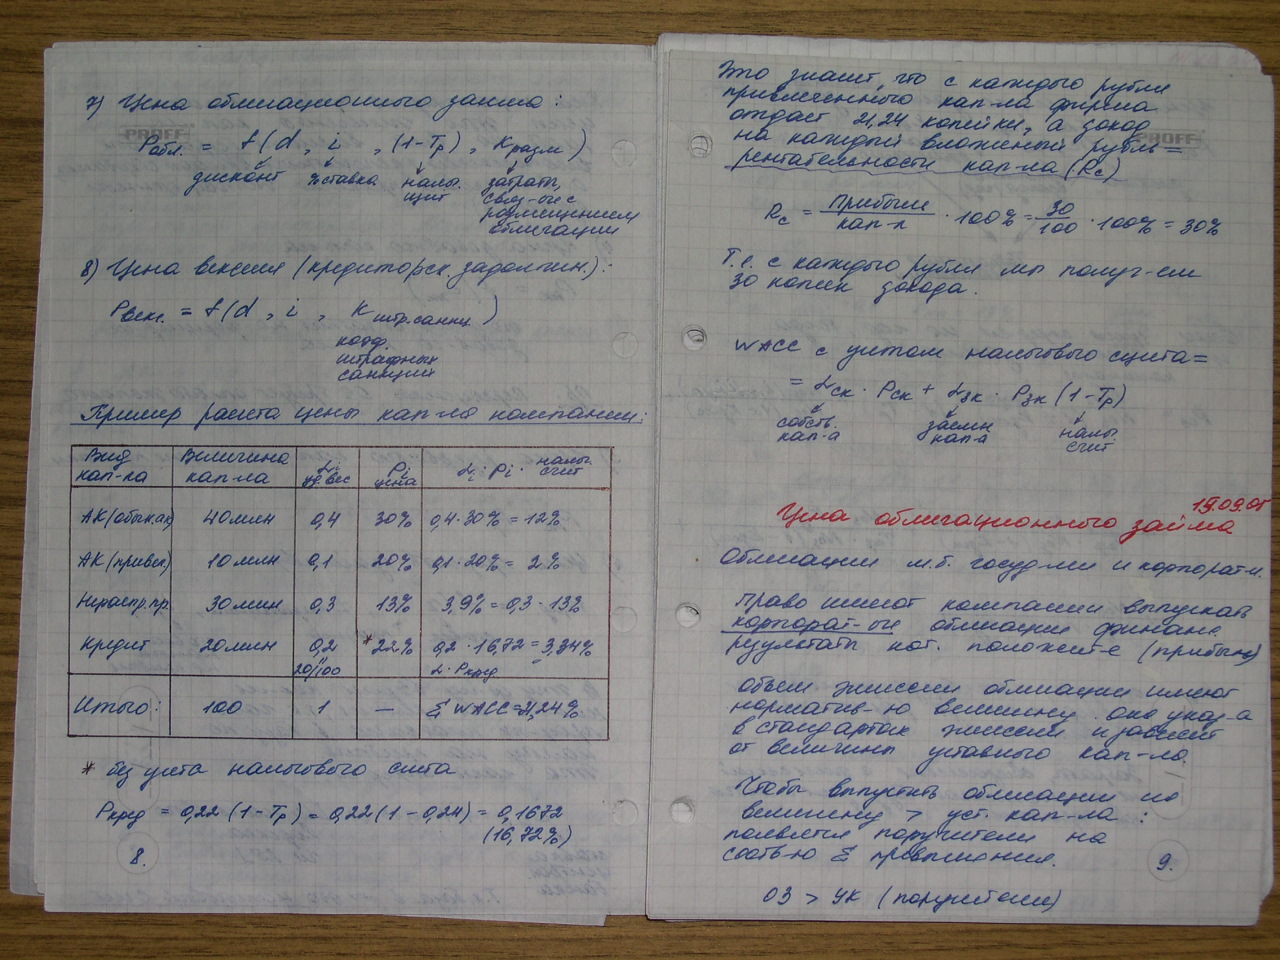 7) Цена облигационного займа:
PROFF
Pобл. = f(d, i, (1-Tp), Kразм)
дисконт % ставка налог. щит затраты,
связ-ые с
размещением
облигации
8) Цена векселя (кредиторск. задолжен.):
Pвекс. = f(d, i, K штр.санкц)
коэф.
штрафных
санкций
Пример расчета цены кап-ла компании:
Вид кап-ла Величина кап-ла di уд. вес Pi цена di · Pi · налог. счит
АК (обык.ак) 40 млн 0,4 30% 0,4·30% = 12%
АК (привел) 10 млн 0,1 20% 0,1·20% = 2%
Нераспр.пр. 30 млн 0,3 13% 3,9% = 0,3·13%
Кредит 20 млн 0,2 *22% 0,2·16,72 = 3,34%
20/100 d·Pкред
Итого: 100 1 — Σ WACC = 21,24%
* без учета налогового счита
Pкред = 0,22 (1-Tp) = 0,22(1-0,24) = 0,1672
(16,72%)
8.
Это значит, что с каждого рубля
привлеченного кап-ла фирма
отдает 21,24 копейки, а доход
на каждый вложенный рубль =
PROFF
рентабельности кап-ла (Rc)
Rc = прибыль/кап-л · 100% = 30/100 · 100% = 30%
Т.е. с каждого рубля мы получ-ем
30 копеек дохода.
WACC с учетом налогового счита =
= dск · Pск + dзк · Pзк (1-Tp)
собств. кап-а заемн кап-а налог. счит
19.09.05
Цена облигационного займа
Облигации м.б. госуд-ми и корпорат-и.
Право имеют компании выпускать
корпорат-ые облигации финанс.
результаты кот. положит-е (прибыль)
Объем эмиссии облигации имеют
норматив-ю величину. Она указ-а
в стандартах эмиссии и зависит
от величины уставного кап-ла.
Чтобы выпустить облигации по
величину > уст. кап-ла:
появляются поручители на
соотв-ю Σ превышения.
ОЗ > УК (поручители)
9.